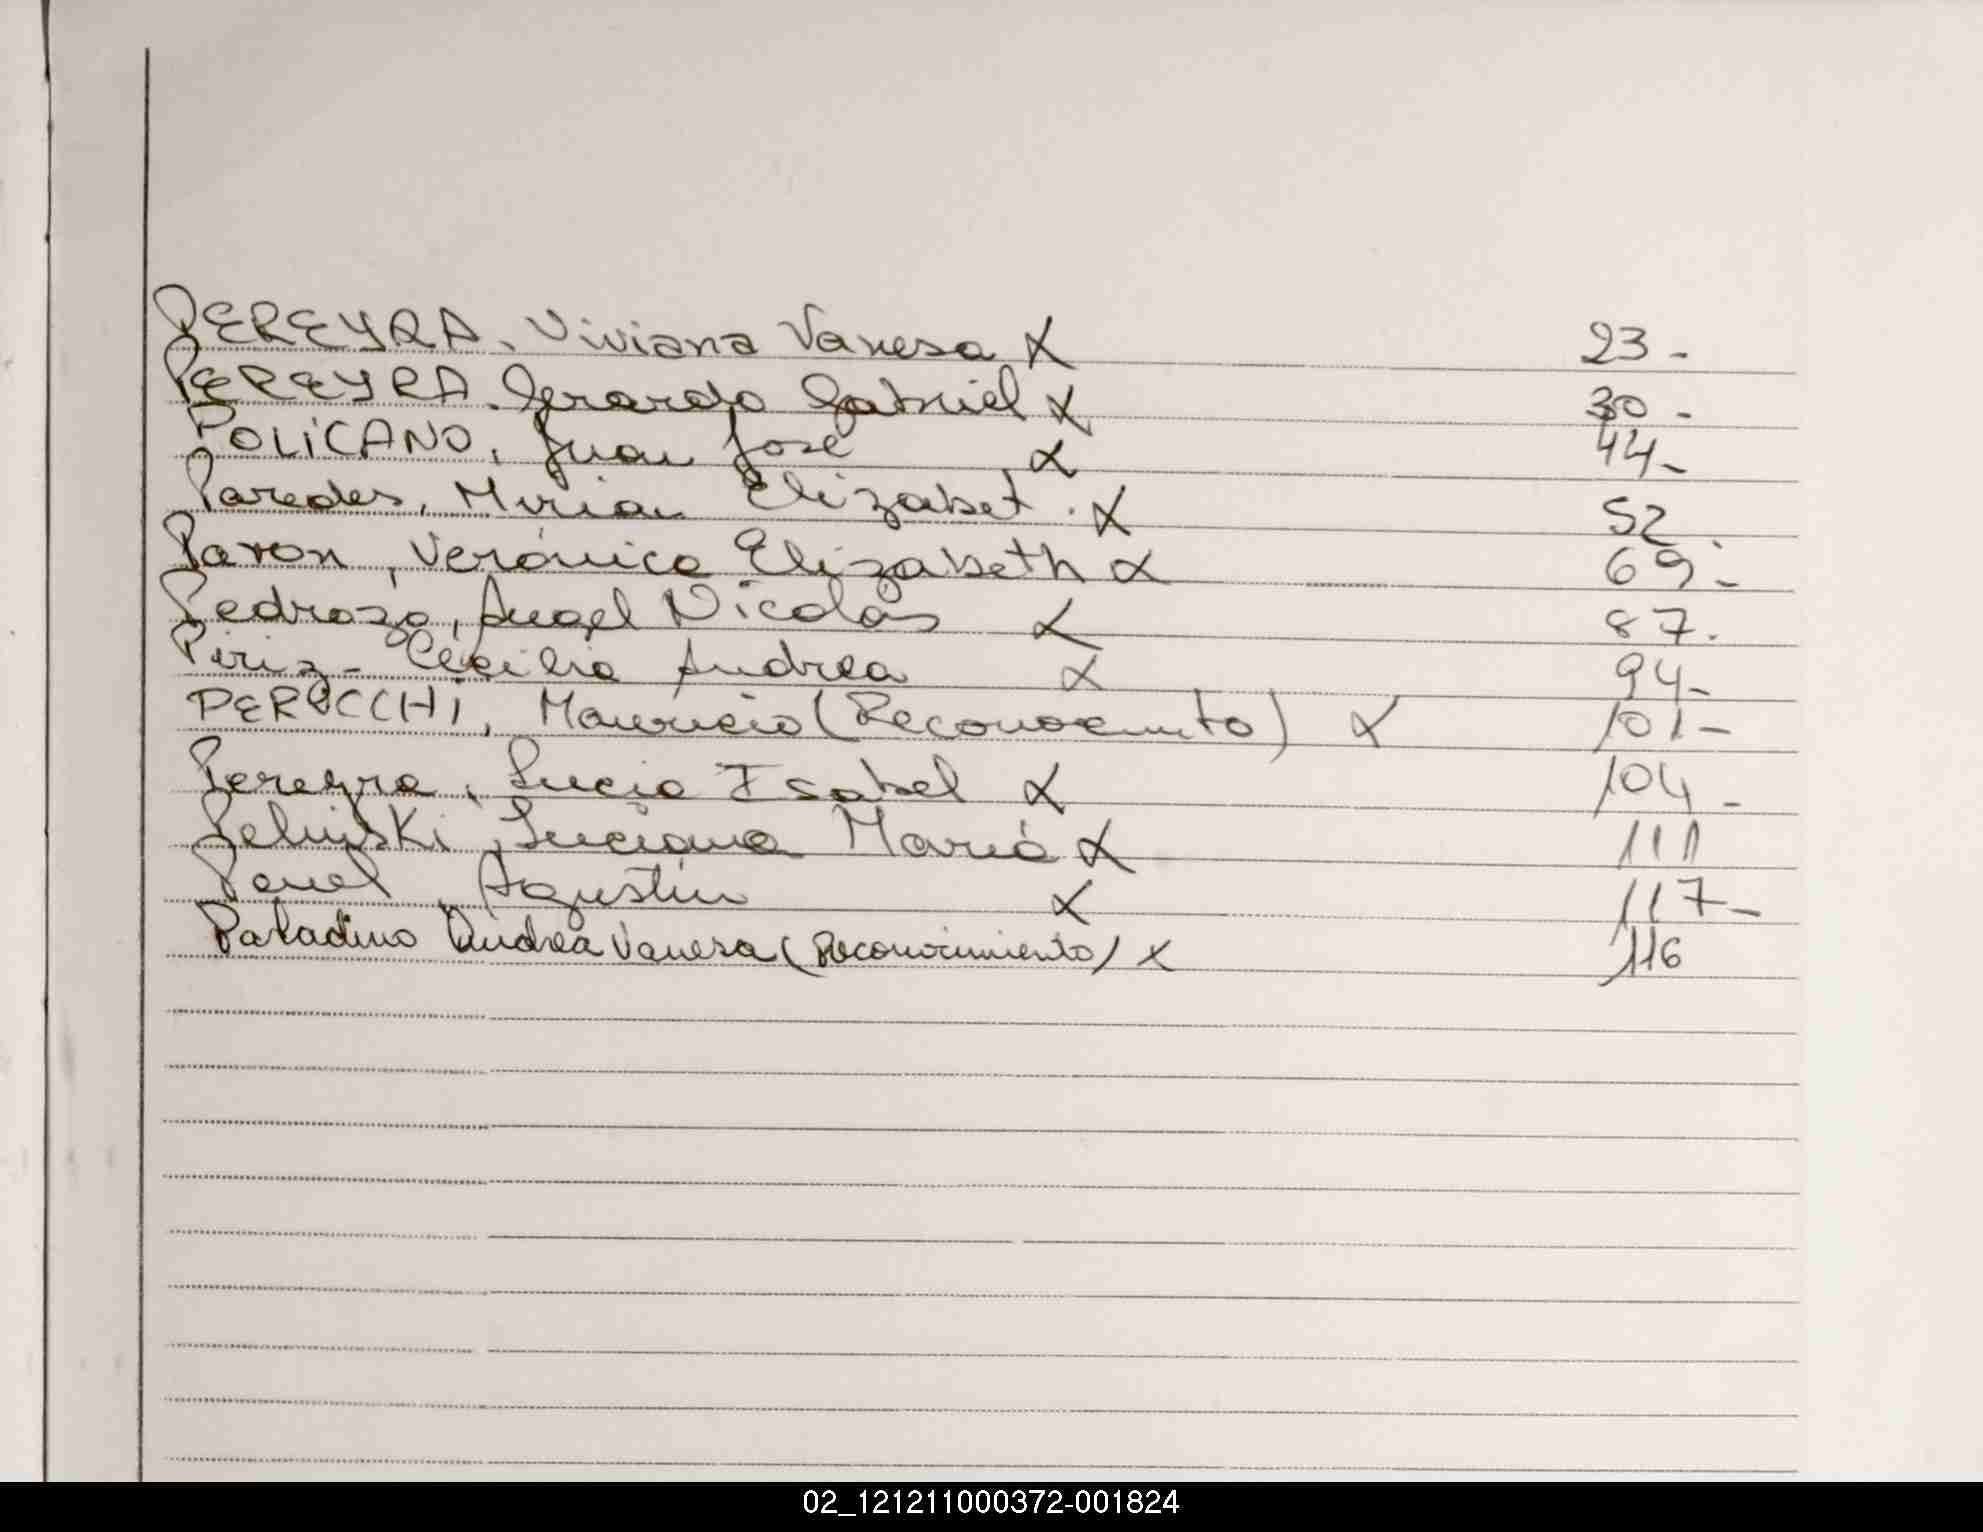 PEREYRA, Viviana Vanesa X 23-
PEREYRA. Gerardo Gabriel X 30-
POLICANO, Juan José X 44-
Paredes, Mirian Elizabet. X 52.
Pavon, Verónica Elizabeth X 69-
Pedrozo, Angel Nicolás X 87.
Piriz- Cecilia Andrea X 94-
PERUCCHI, Mauricio (Reconocimto) X 101-
Pereyra, Lucia Isabel X 104-
Luciana María X 111
Agustín X 117-
Paladino Andrea Vanesa (Reconocimiento) X 116
02_121211000372-001824